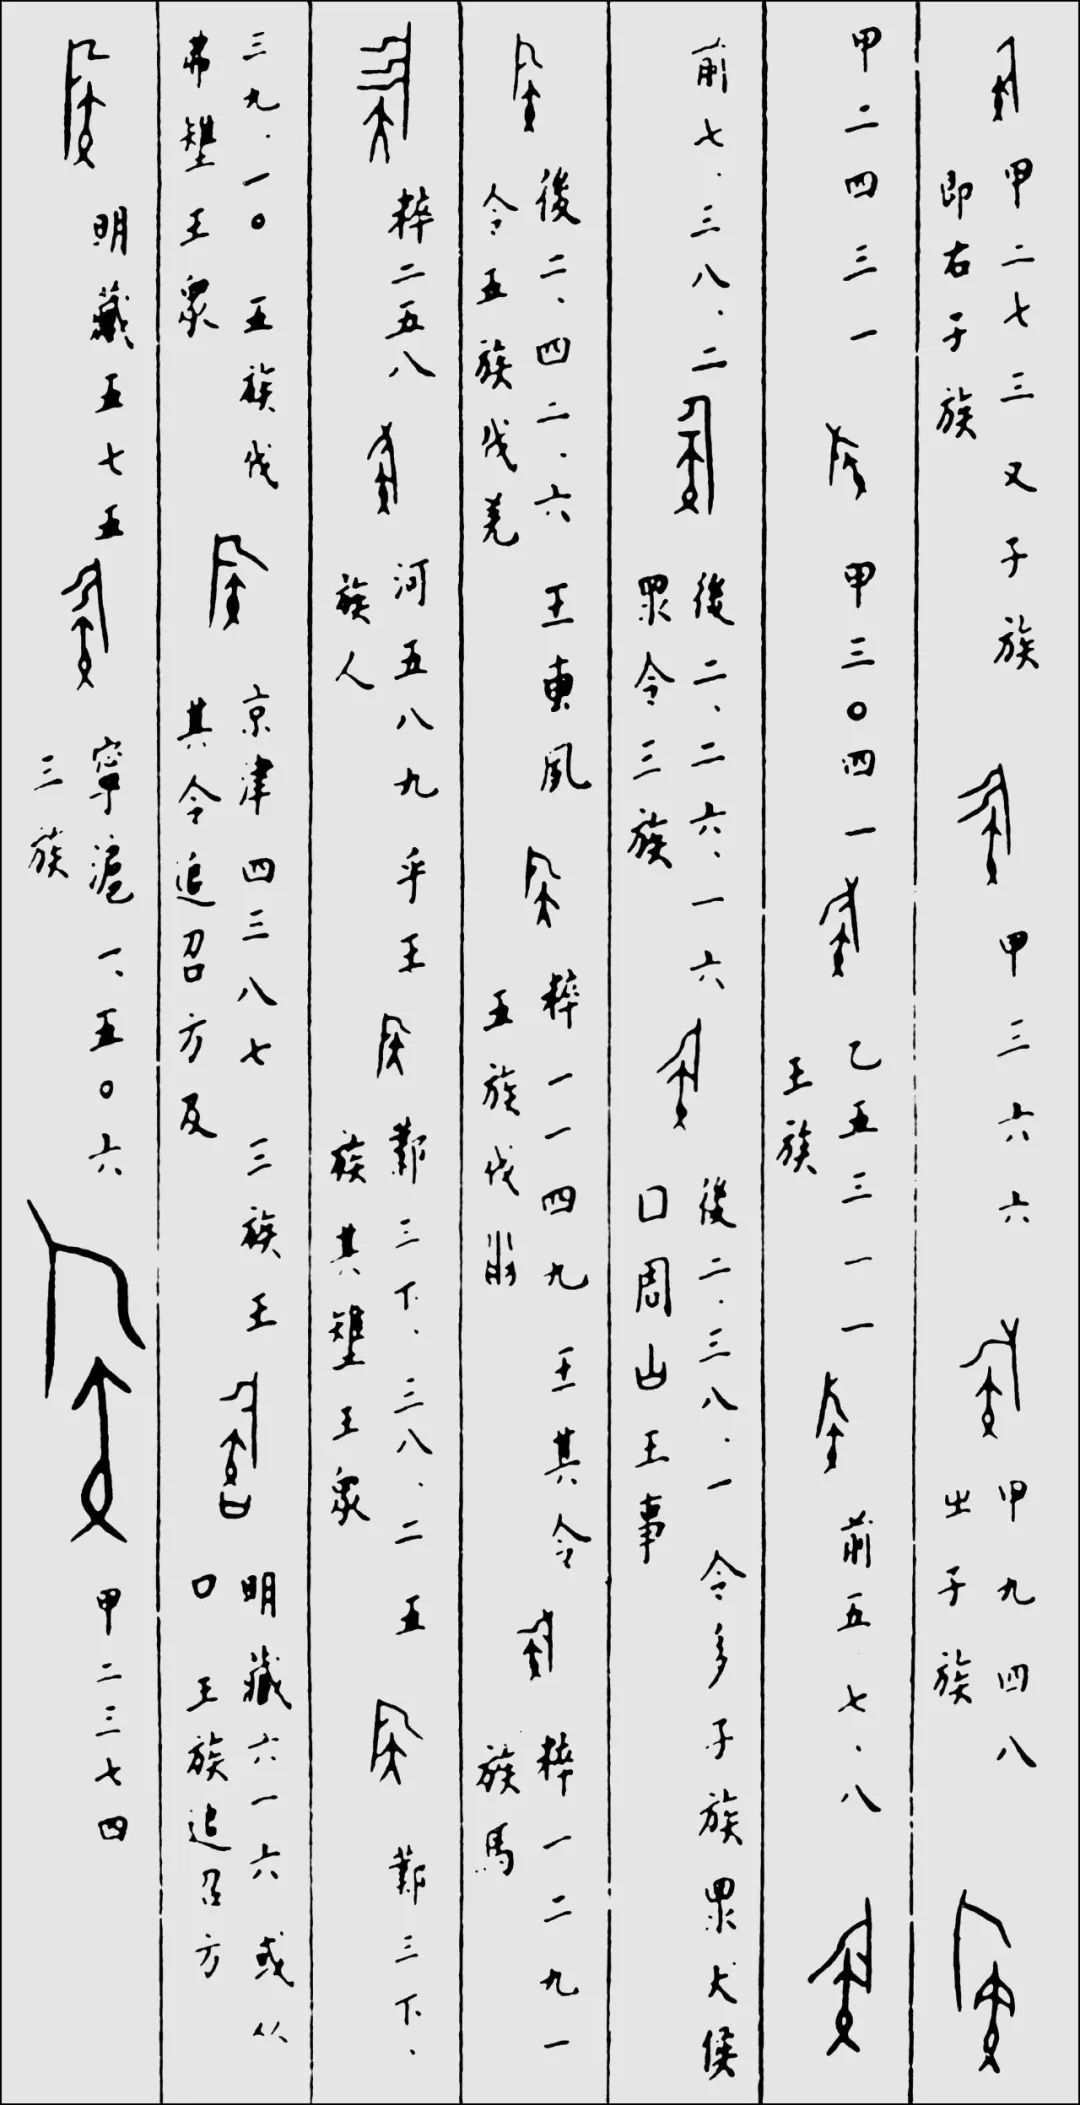 甲二七三 又子族
即右子族
甲三六六
甲九四八
㞢子族
甲二四三一
甲三〇四一
乙五三一一
王族
前五.七.八
前七.三八.二
後二、二六、一六
眾令三族
後二.三八.一 令多子族眾犬侯
口周㞢王事
後二、四二、六 王東風
令五族伐羌
粹一一四九 王其令
五族伐
粹一二九一
族馬
粹二五八
河五八九 乎王
族人
鄴三下、三八.二 五
族其𡎺王眾
鄴三下、
三九.一〇 五族伐
弗𡎺王眾
京津四三八七 三族王
其令追召方及
明藏六一六 或从
口 王族追召方
明藏五七五
寧滬一、五〇六
三族
甲二三七四